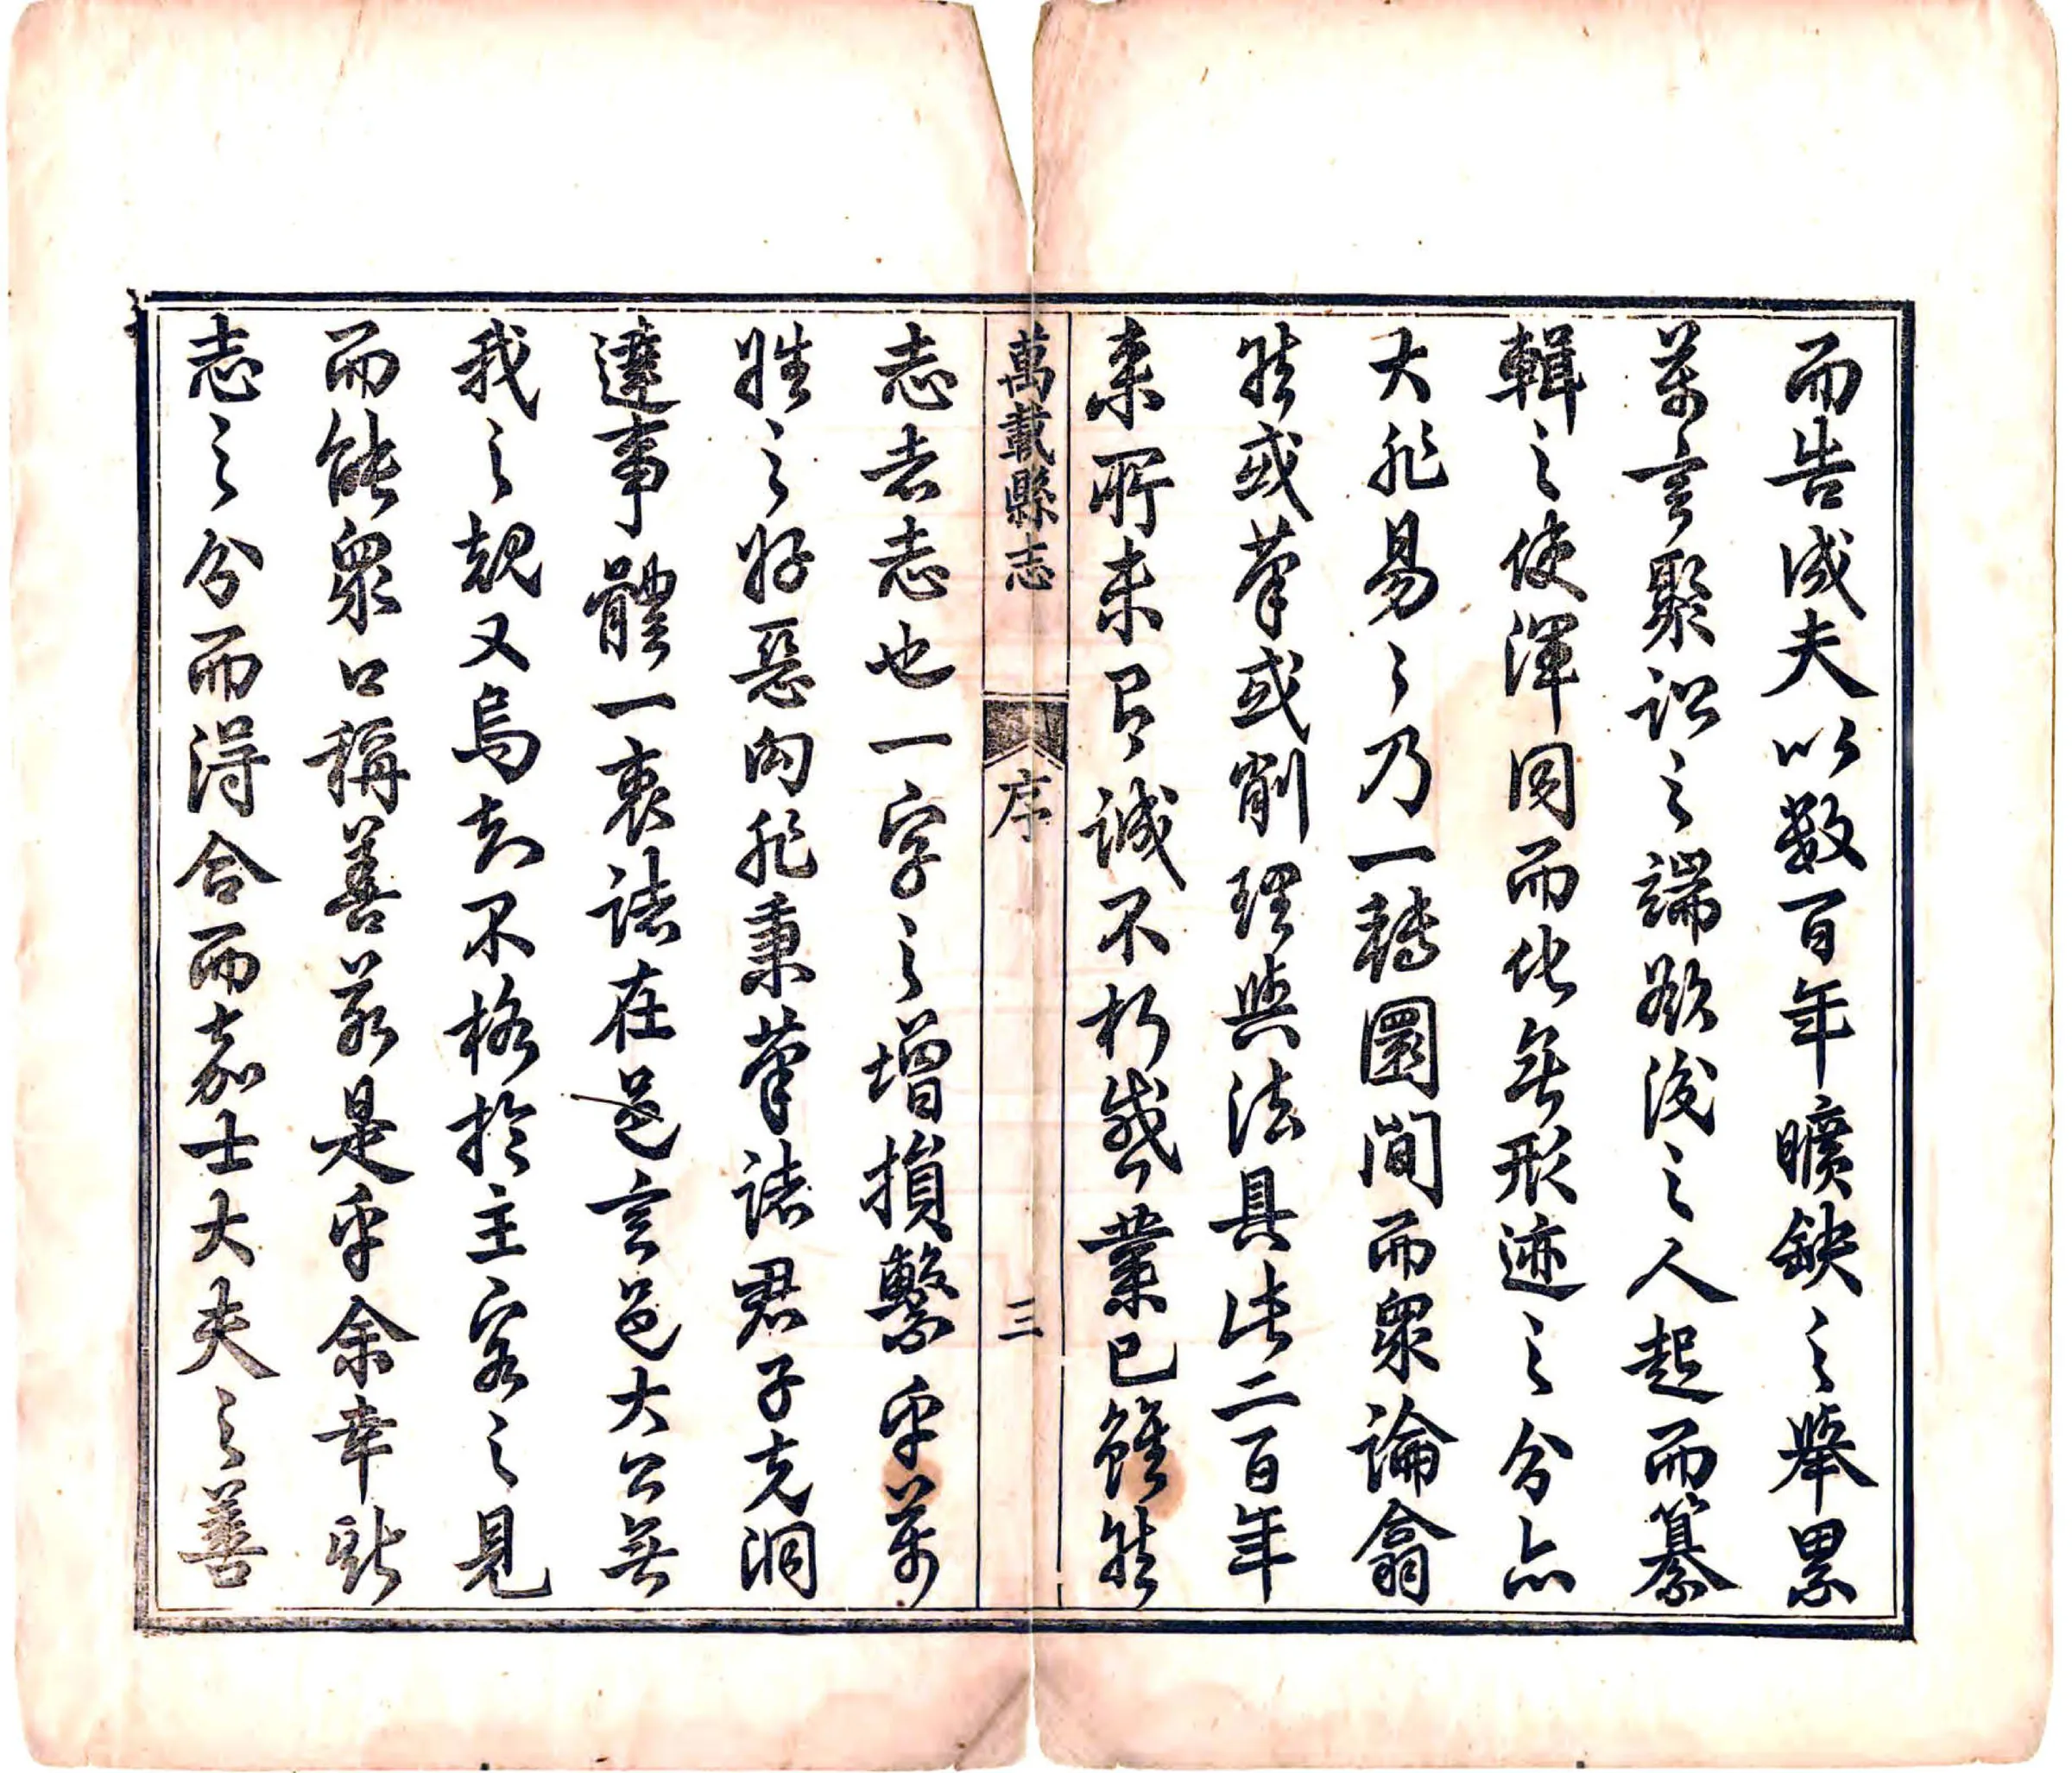 而告成夫以数百年曠缺之舉累
萬言聚訟之端欲後之人起而纂
輯之使渾同而化無形迹之分亦
大非易々乃一轉圜間而衆論翕
然或筆或削理與法具法二百年
来所未有誠不朽盛業已雖然
萬載縣志
序
三
志者志也一字之增損繫乎萬
姓之好惡內非秉筆諸君子克洞
達事體一衷諸在邑言邑大公無
我之規又烏知不格於主客之見
而能衆口稱善若是乎余幸斯
志之分而得合而嘉士大夫之善